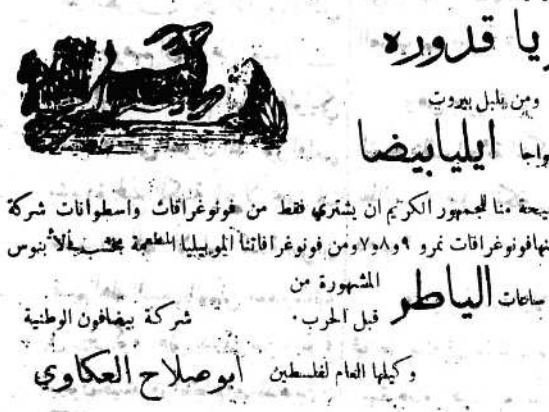 يا قدوره
ومن بلبل بيروت
ايليا بيضا
منا للجمهور الكريم ان يشتري فقط من فونوغرافات واسطوانات شركة
نمرو ٩و٨و٧ ومن فونوغرافاتنا الموبيليا المطعمة بخشب الأبنوس
المشهورة من
ساعات الياطر
قبل الحرب ٠
شركة بيضافون الوطنية
وكيلها العام لفلسطين ابو صلاح العكاوي